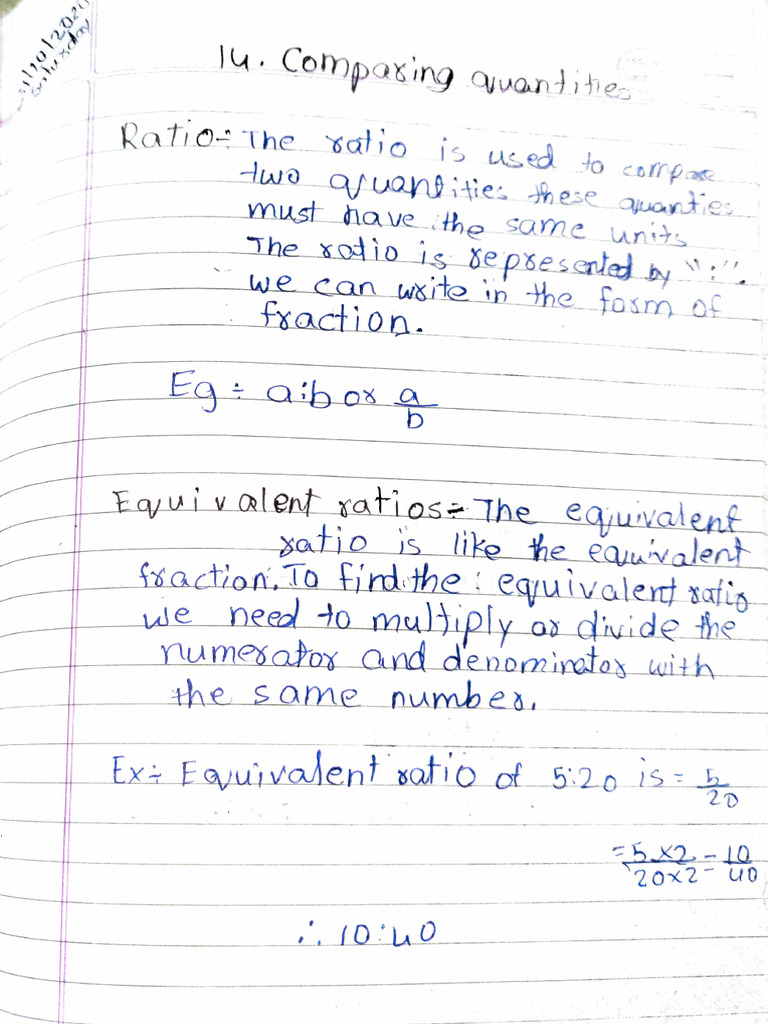 31/10/2020
Saturday
14. Comparing quantities
Ratio÷ The ratio is used to compare
two quantities these quanties
must have the same units
The ratio is represented by ":".
we can write in the form of
fraction.
Eg ÷ a:b or a/b
Equivalent ratios÷ The equivalent
ratio is like the equivalent
fraction. To find the equivalent ratio
we need to multiply or divide the
numerator and denominator with
the same number.
Ex÷ Equivalent ratio of 5:20 is = 5/20
= 5×2/20×2 = 10/40
∴ 10:40